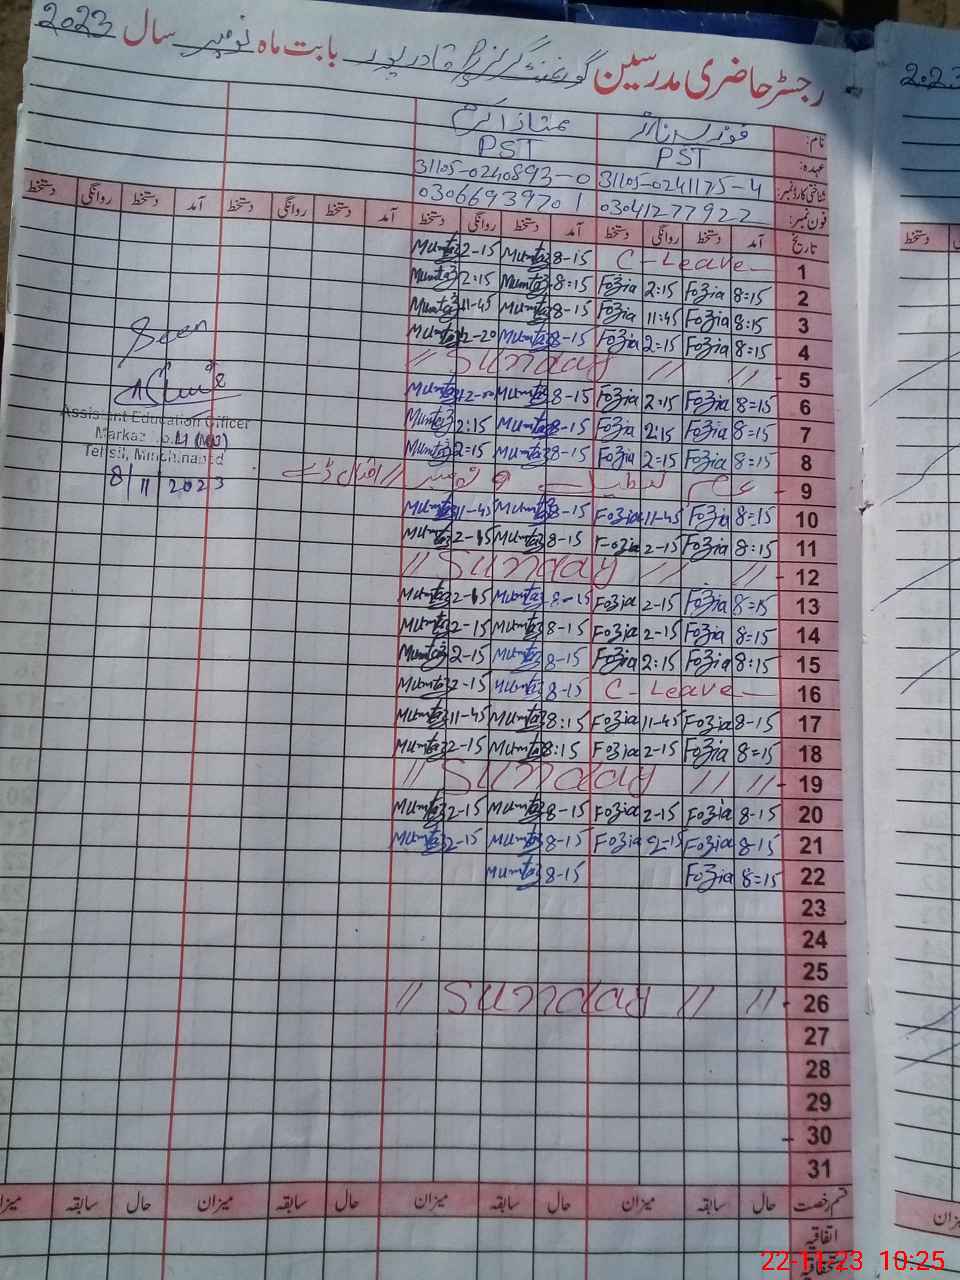 رجسٹر حاضری مدرسین گورنمنٹ گرلز پرائمری قادر پور بابت ماہ نومبر سال 2023
2023
نام: فوزیہ ناز ممتاز اکرم
عہدہ: PST PST
شناختی کارڈ نمبر: 31105-0241175-4 31105-0240893-0
فون نمبر: 03041277922 03066939701
تاریخ آمد دستخط روانگی دستخط آمد دستخط روانگی دستخط آمد دستخط روانگی دستخط آمد دستخط روانگی دستخط
1 C-Leave 8-15 Mumtaz 2-15 Mumtaz
2 8=15 Fozia 2:15 Fozia 8=15 Mumtaz 2:15 Mumtaz
3 8:15 Fozia 11:45 Fozia 8-15 Mumtaz 11-45 Mumtaz
4 8=15 Fozia 2=15 Fozia 8-15 Mumtaz 2-20 Mumtaz
5 // // Sunday //
6 8=15 Fozia 2:15 Fozia 8-15 Mumtaz 12-00 Mumtaz
7 8=15 Fozia 2:15 Fozia 8-15 Mumtaz 2:15 Mumtaz
8 8=15 Fozia 2=15 Fozia 8-15 Mumtaz 2=15 Mumtaz
9 عام تعطیل 9 نومبر // اقبال ڈے
10 8=15 Fozia 11-45 Fozia 8-15 Mumtaz 11-45 Mumtaz
11 8:15 Fozia 2-15 Fozia 8-15 Mumtaz 2-15 Mumtaz
12 // // Sunday //
13 8=15 Fozia 2-15 Fozia 8-15 Mumtaz 2-15 Mumtaz
14 8=15 Fozia 2-15 Fozia 8-15 Mumtaz 2-15 Mumtaz
15 8:15 Fozia 2:15 Fozia 8-15 Mumtaz 2-15 Mumtaz
16 C-Leave 8-15 Mumtaz 2-15 Mumtaz
17 8-15 Fozia 11-45 Fozia 8:15 Mumtaz 11-45 Mumtaz
18 8=15 Fozia 2-15 Fozia 8:15 Mumtaz 2-15 Mumtaz
19 // // Sunday //
20 8-15 Fozia 2-15 Fozia 8-15 Mumtaz 2-15 Mumtaz
21 8-15 Fozia 2-15 Fozia 8-15 Mumtaz 2-15 Mumtaz
22 8=15 Fozia 8-15 Mumtaz
23
24
25
26 // // Sunday //
27
28
29
30
31
Seen
Assistant Education Officer
Markaz
Tehsil, Minchinabad
8/11/2023
قسم رخصت حال سابقہ میزان حال سابقہ میزان حال سابقہ میزان حال سابقہ میزان
اتفاقیہ
استحقاقیہ
دستخط
22-11-23 10:25